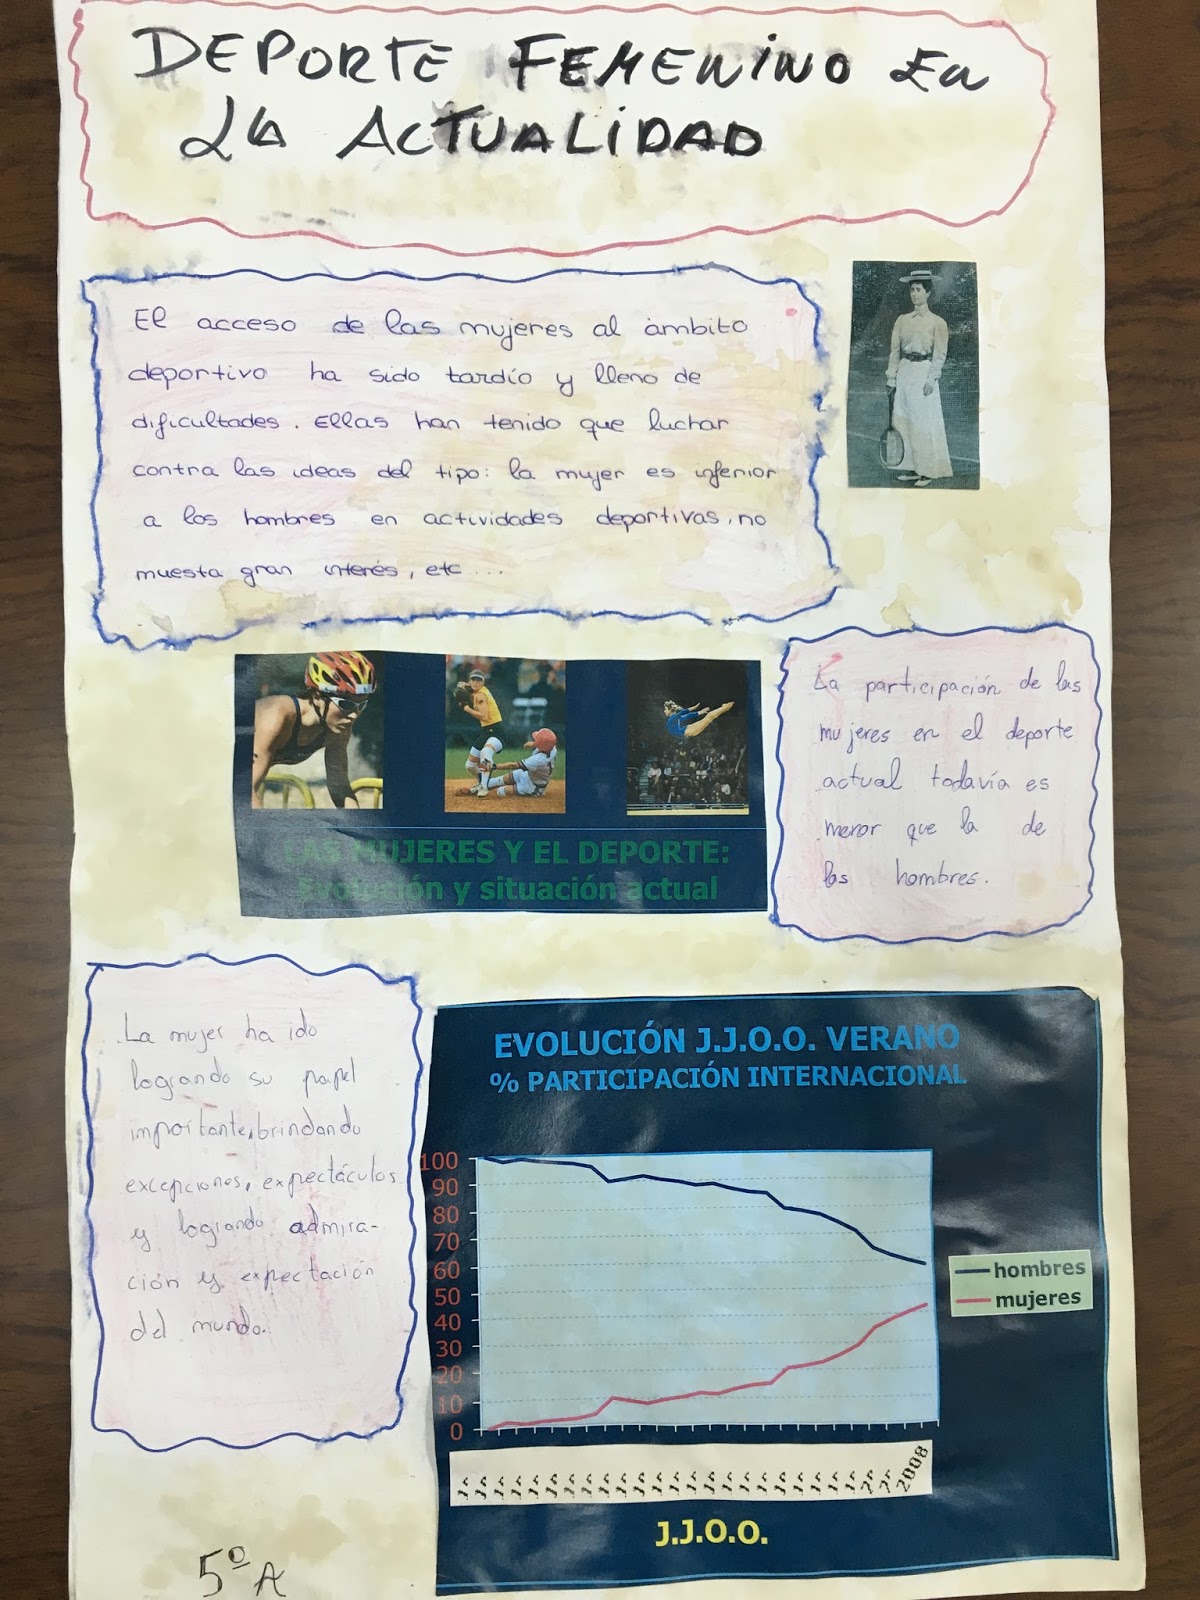 DEPORTE FEMENINO EN
LA ACTUALIDAD
El acceso de las mujeres al ámbito
deportivo ha sido tardío y lleno de
dificultades. Ellas han tenido que luchar
contra las ideas del tipo: la mujer es inferior
a los hombres en actividades deportivas, no
muesta gran interés, etc...
LAS MUJERES Y EL DEPORTE:
Evolución y situación actual
La participación de las
mujeres en el deporte
actual todavía es
menor que la de
los hombres.
La mujer ha ido
logrando su papel
importante, brindando
excepciones, expectáculos
y logrando admira-
ción y expectación
del mundo.
EVOLUCIÓN J.J.O.O. VERANO
% PARTICIPACIÓN INTERNACIONAL
100
90
80
70
60
50
40
30
20
10
0
hombres
mujeres
2008
J.J.O.O.
5º A